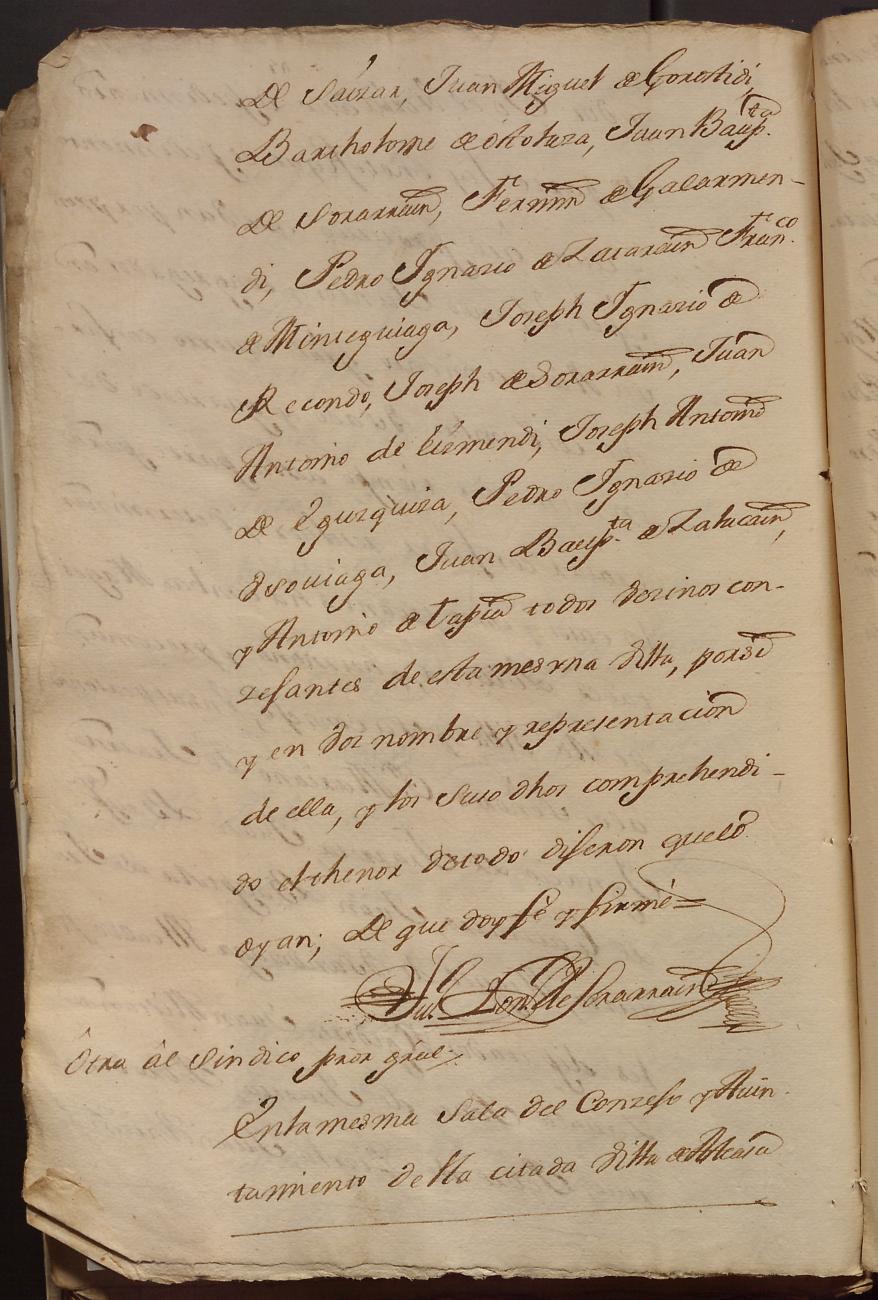 De Saizar, Juan Miguel de Gorostidi,
Bartholome de Aotuza, Juan Baup.ta
De Sorarrain, Fermin de Galarmen-
di, Pedro Ygnazio de Zatarain Fran.co
de Minteguiaga, Joseph Ygnazio de
Recondo, Joseph de Sorarrain, Juan
Antonio de Eizmendi, Joseph Antonio
De Eguzquiza, Pedro Ygnazio de
Juan Baup.ta de Zatucain,
y Antonio de Tapia todos vezinos con-
zejantes de esta mesma villa, por si
y en voz nombre y representacion
de ella, y los suso dhos comprehendi-
do el thenor de todo dijeron que lo
oyan; De que doy fe y firmé =
De Sorarrain
Otra âl Sindico pror gral.
En la mesma Sala del Conzejo y Aiun-
tamiento de la citada villa de Alcaia